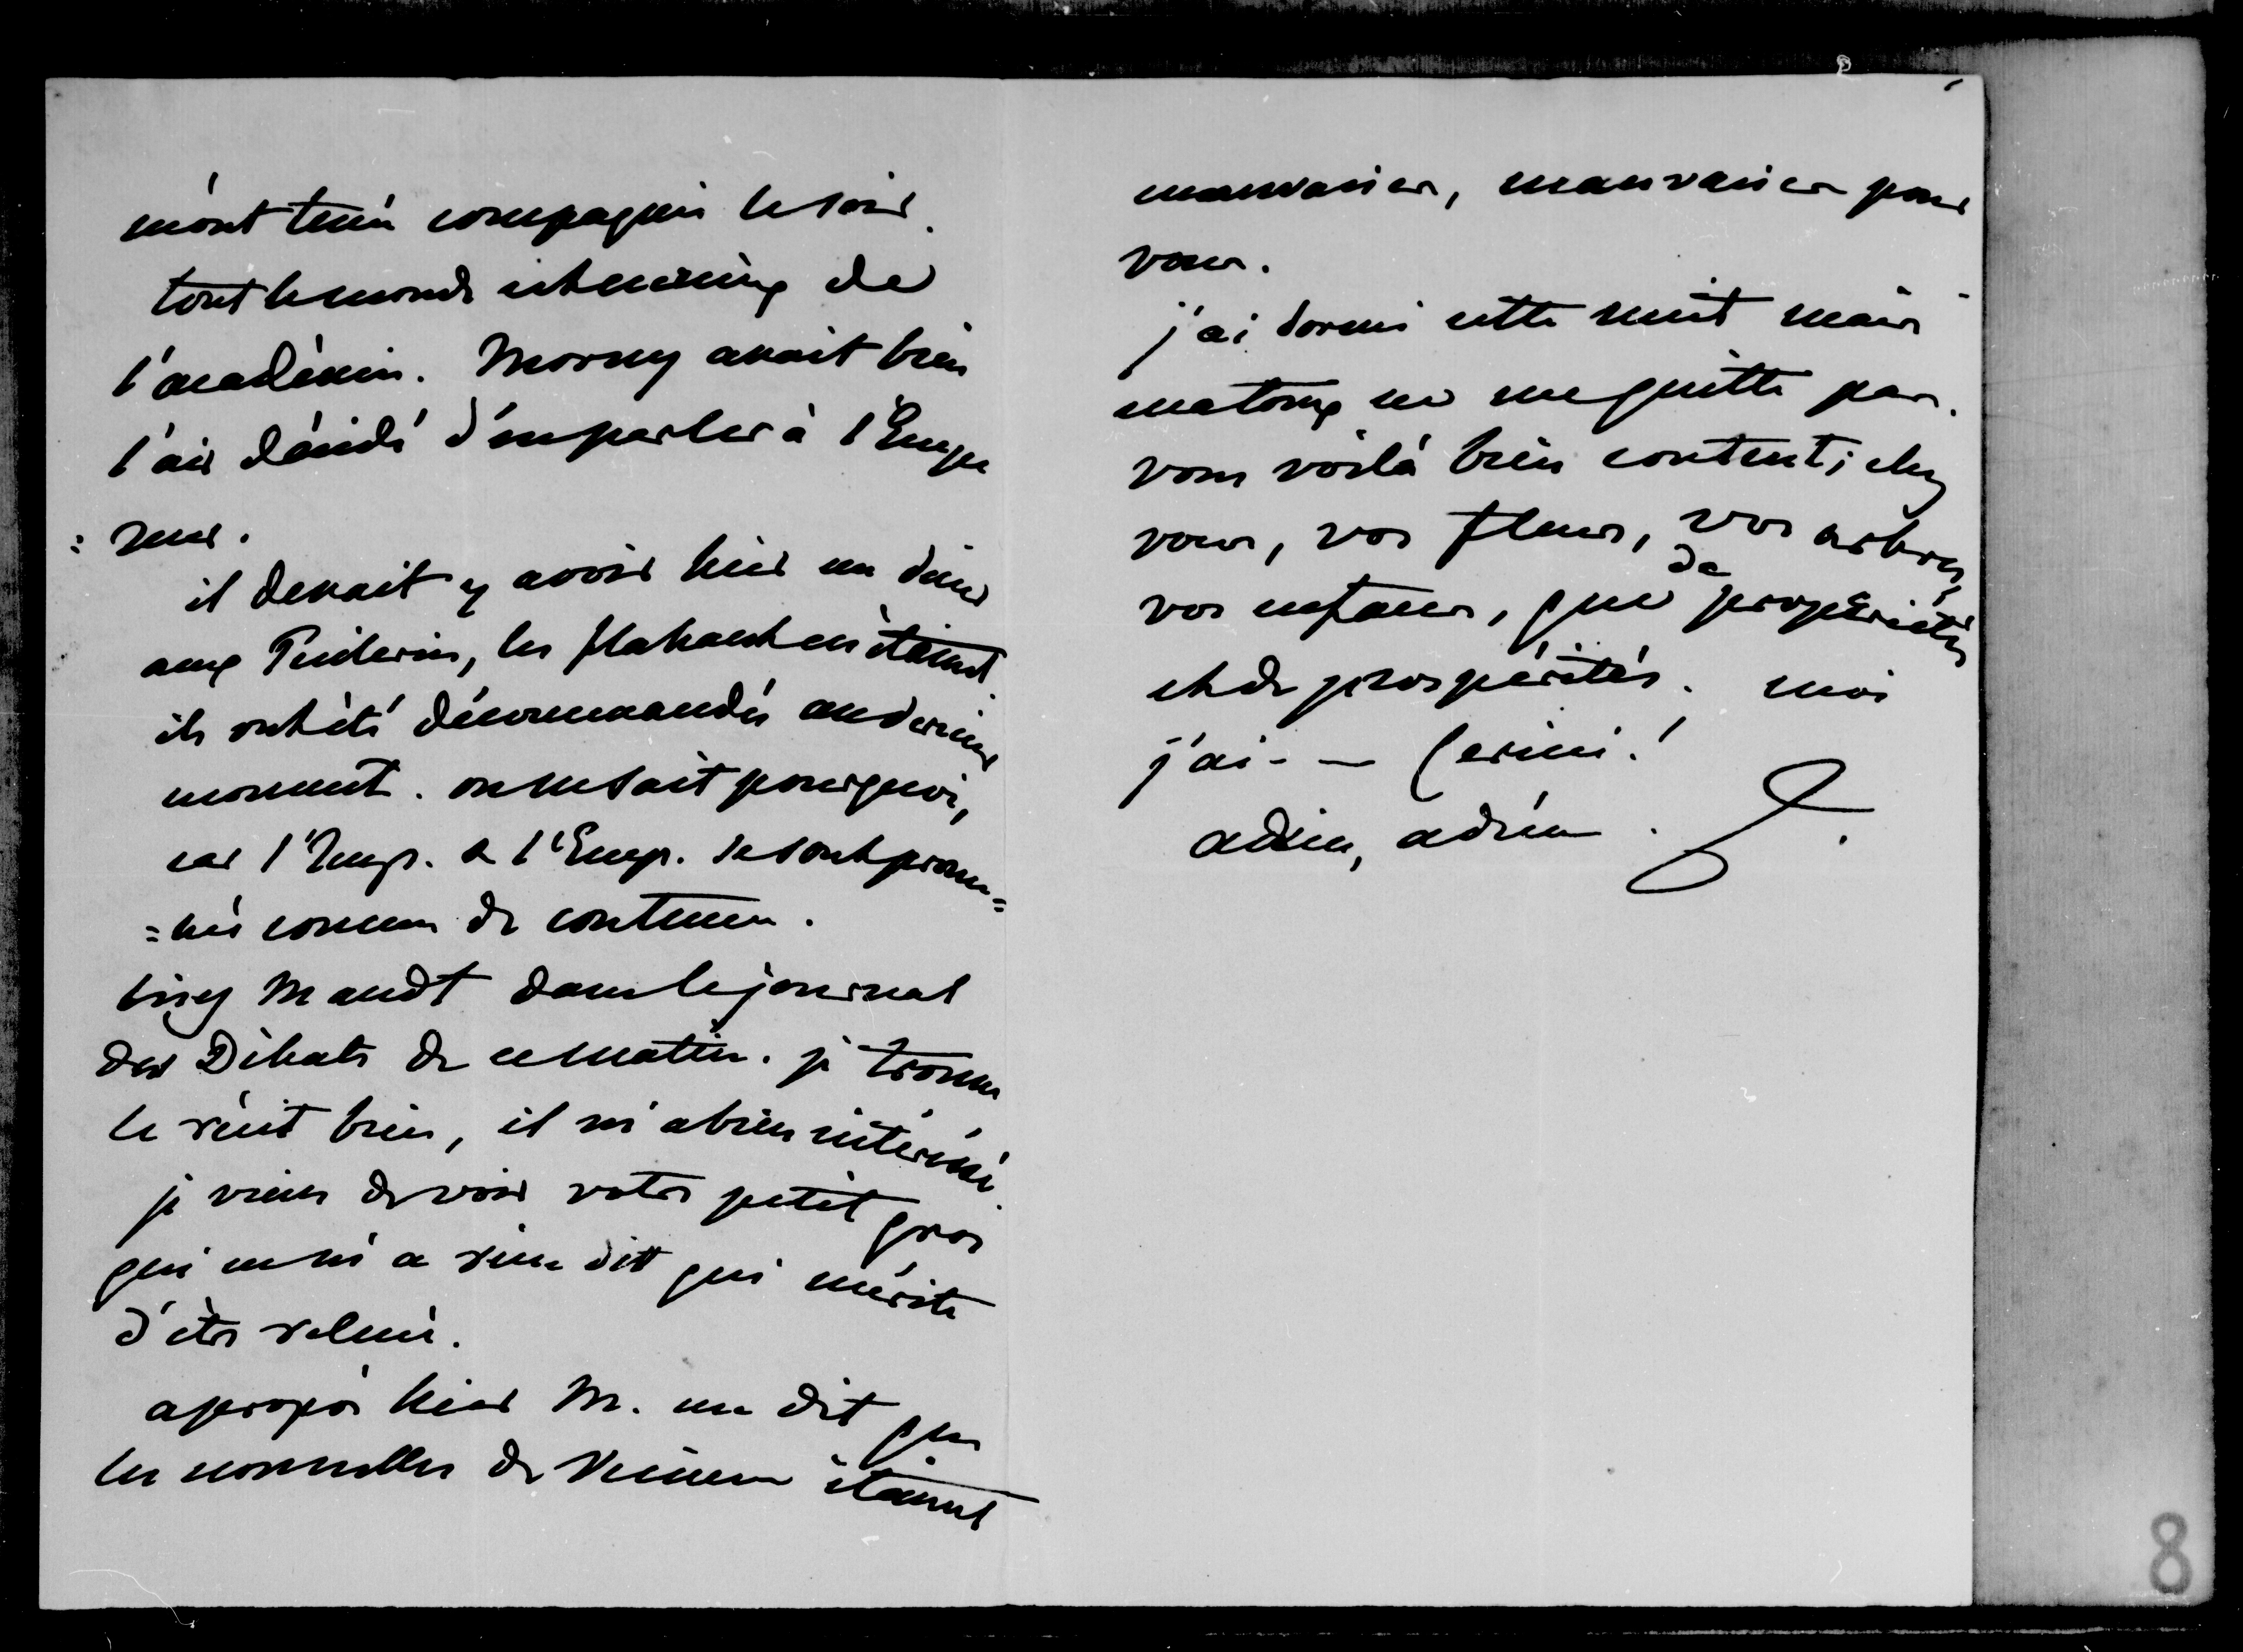 m'ont tenu compagnie le soir.
tout le monde est ennuyé de
l'académie. Morny avait bien
l'air décidé d'en parler à l'Empe
=reur.
il devait y avoir hier un diner
aux Tuileries, les Hatzfeldt en étaient
ils ont été décommandés au dernier
moment. on ne sait pourquoi,
car l'Emp. & l'Emp. se sont prome=
=nés comme de coutume.
lisez Mandt dans le journal
des Débats de ce matin. je trouve
le récit bien, il m'a bien intéressé.
je viens de voir votre petit gros
qui ne m'a rien dit qui mérite
d'être relevé.
apropos hier M. me dit que
les nouvelles de Vienne étaient
mauvaises, mauvaises pour
vous.
j'ai dormi cette nuit mais
ma toux ne me quitte pas.
vous voilà bien content; chez
vous, vos fleurs, vos arbres,
vos enfans, que de propriétés
et de prospérités. moi
j'ai - — Cerini!
adieu, adieu.
8